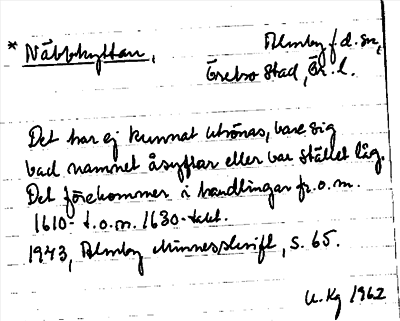 * Näbbhyttan, Almby f d. sn,
Örebro stad, Ör. l.
Det har ej kunnat utrönas, vare sig
vad namnet åsyftar eller var stället låg.
Det förekommer i handlingar fr.o.m.
1610- t.o.m. 1630-talet.
1943, Almby Minnesskrift, s. 65.
U. Kg 1962